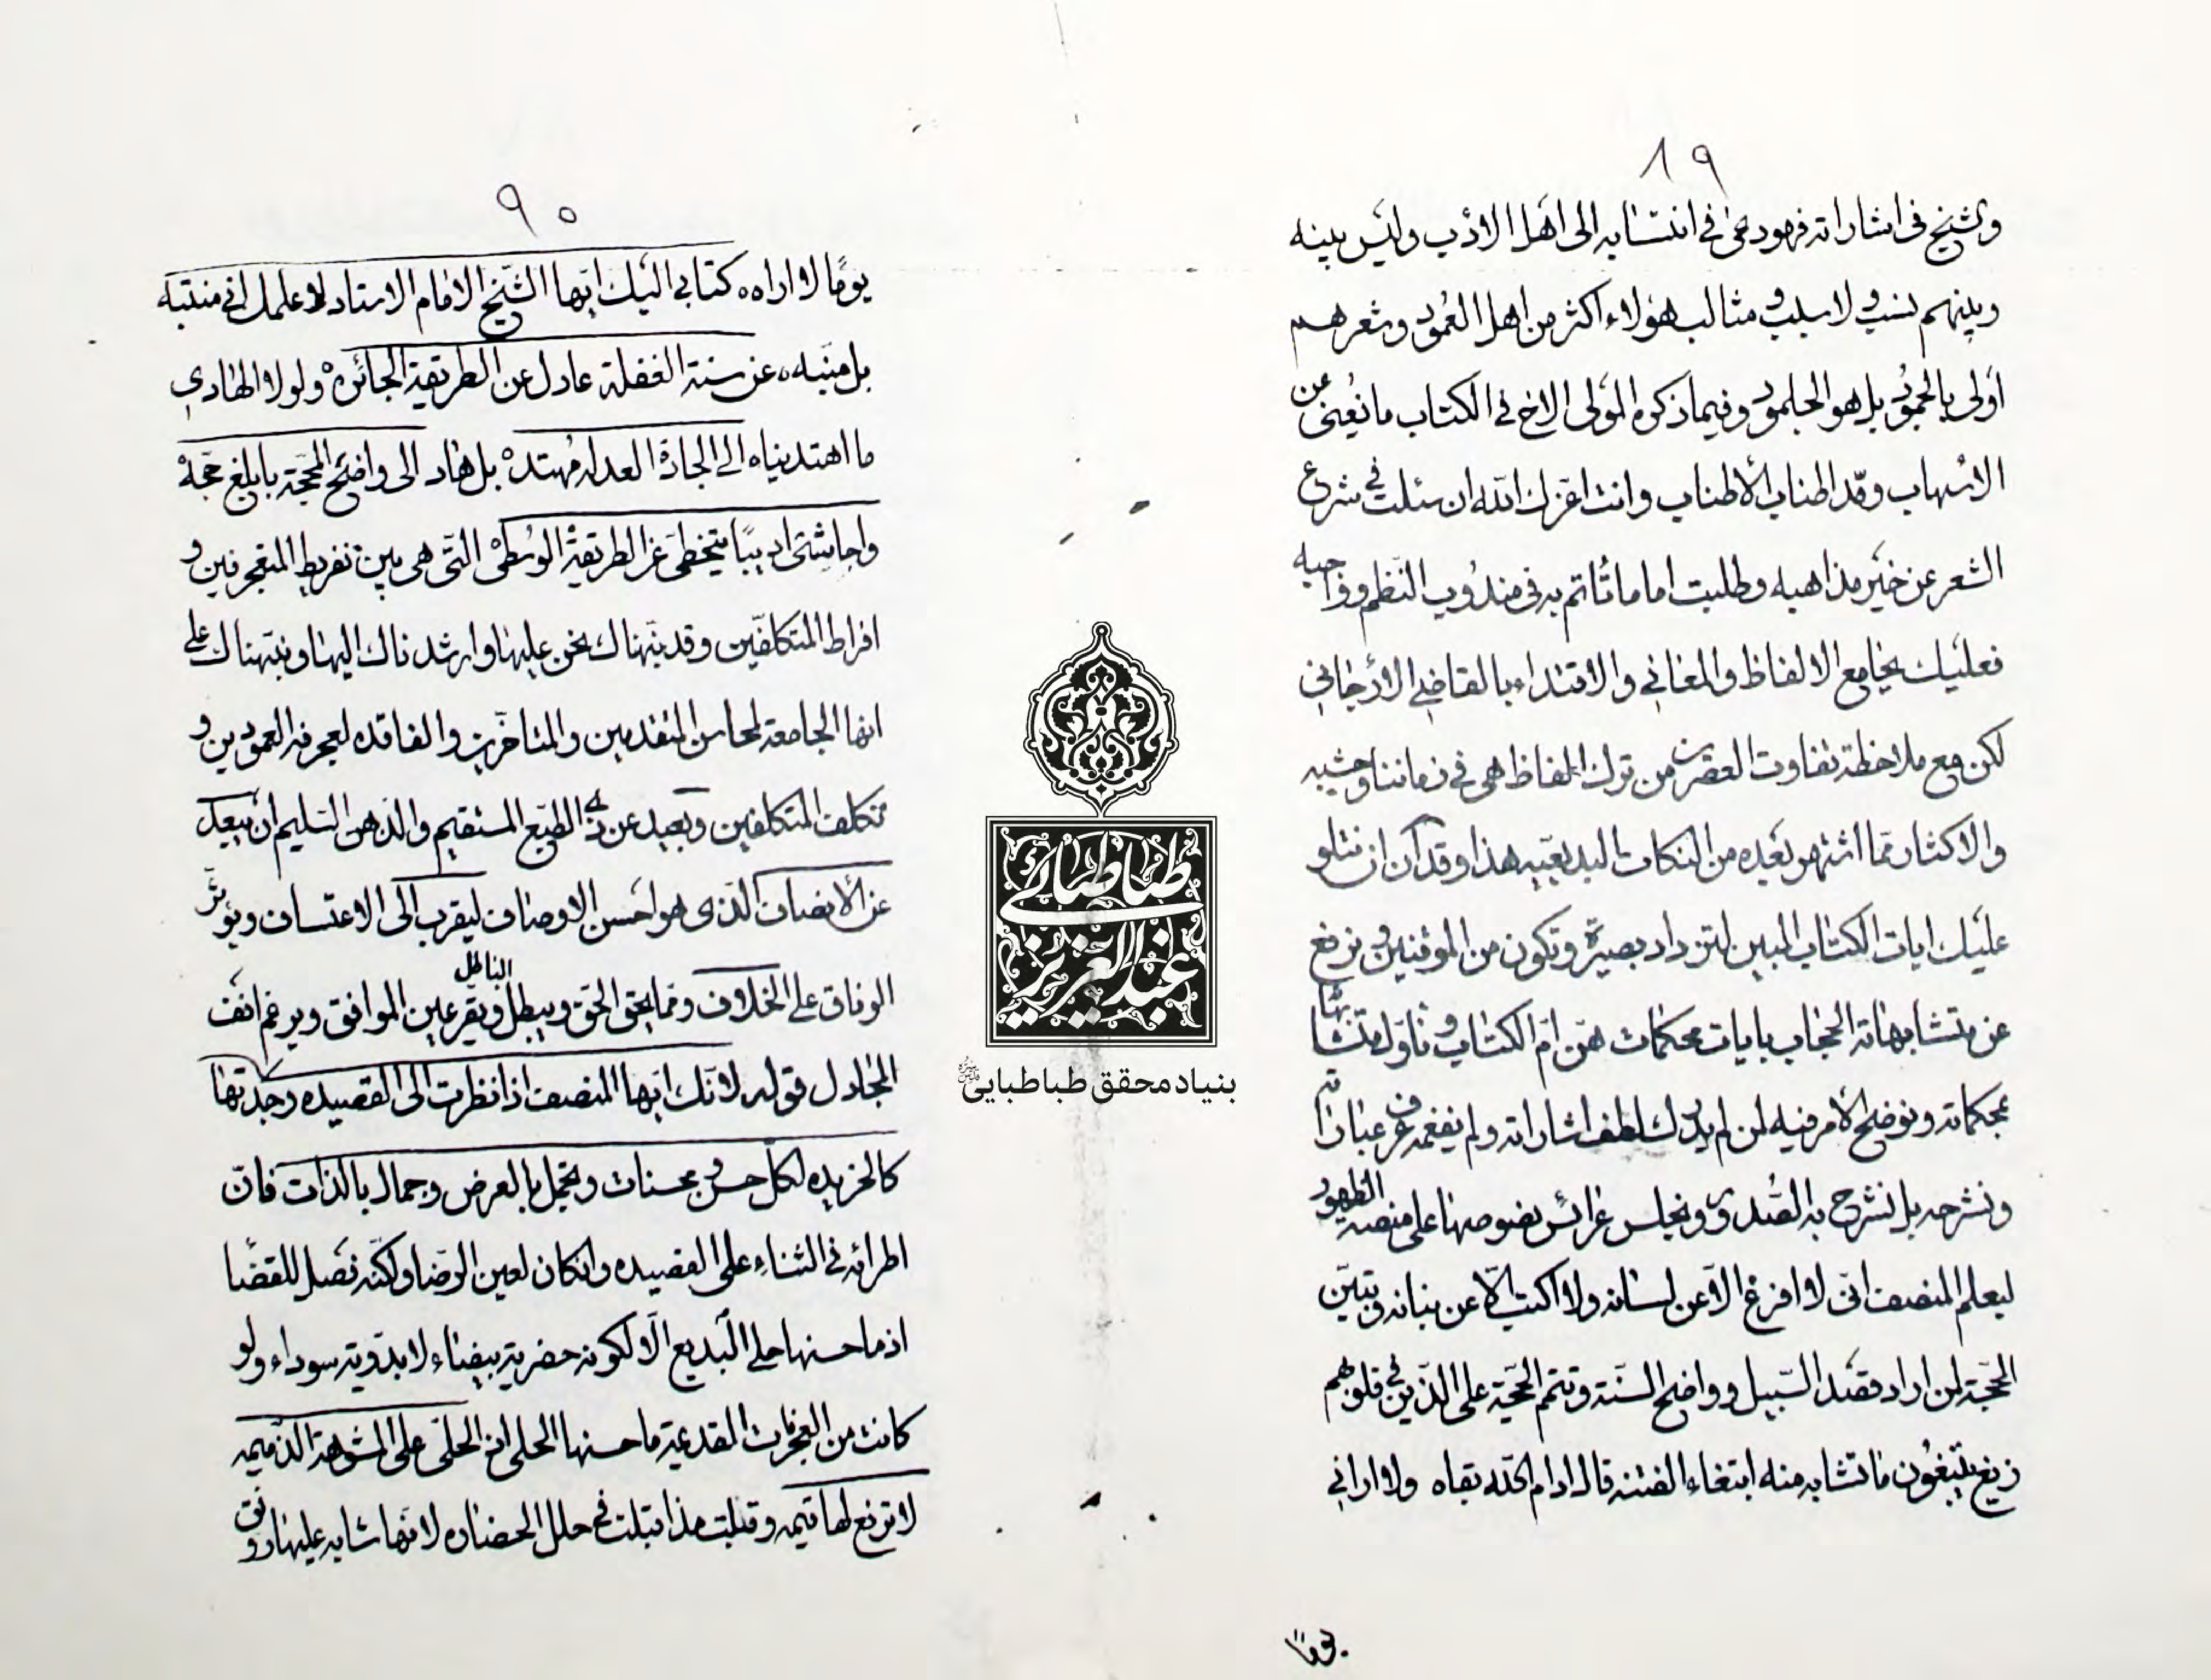 ٨٩
وشيخ في اشاراته فهو دعى في انتسابه الى اهل الادب وليس بينه
وبينهم نسب ولا سبب ومثالب هؤلاء اكثر من اهل العمود وشعرهم
أولى بالجمود بل هو الجلمود وفيما ذكره المولى الاخ في الكتاب ما يغنى عن
الاسهاب ومدّ اطناب الأطناب وانت اعزك الله ان سئلت في شرع
الشعر عن خير مذاهبه وطلبت اماما تأتم به في مندوب النظم وواجبه
فعليك بجامع الالفاظ والمعاني والاقتداء بالقاضي الأرجاني
لكن مع ملاحظة تفاوت العصرين من ترك الفاظ هي في زماننا وحشيه
والاكثار مما اشتهر بعده من النكات البديعيه هذا وقد آن ان نتلو
عليك ايات الكتاب المبين لتزداد بصيرة وتكون من الموقنين ونرفع
عن متشابهاته الحجاب بايات محكمات هنّ امّ الكتاب ونأول متشابهاته
بمحكماته ونوضح الأمر فيه لمن لم يدرك لطف اشاراته ولم يفغمه عرف عباراته
ونشرحه بل نشرح به الصدور ونجلس عرائس نصوصها على منصة الظهور
ليعلم المنصف انّى لا افرغ الاّ عن لسانه ولا اكتب الاّ عن بنانه وتبيّن
المحجة لمن اراد قصد السّبيل وواضح السنّة وتتم الحجّة على الذّين في قلوبهم
زيغ يتبعون ما تشابه منه ابتغاء الفتنه قال ادام الله بقاه ولا اراني
يوما
٩٠
يومًا لا اراه كتابي اليك ايّها الشيخ الامام الاستاد لاعلمك اني منتبه
بل منبّه عن سنة الغفلة عادل عن الطريقة الجائره ولولا الهادي
ما اهتديناه الى الجادة العدله مهتد بل هاد الى واضح المحجّة بابلغ حجّة
وحاشى اديبًا يتخطى عن الطريقة الوسطى التّي هي بين تفريط المتعجرفين و
افراط المتكلفّين وقد نبّهناك نحن عليها وارشدناك اليها ونبّهناك على
انها الجامعة لمحاسن المتقدمين والمتاخرّين والفاقده لعجرفة العموديين و
تكلف المتكلفين وبعيد عن ذي الطبع المستقيم والذهن السّليم ان يبعد
عن الأنصاف الذّى هو احسن الاوصاف ليقرب الى الاعتساف ويؤثر
الوفاق على الخلاف ومما يحق الحق ويبطل الباطل ويقر عين الموافق ويرغم انف
المجادل قوله لانّك ايّها المنصف اذا نظرت الى القصيده وجدتها
كالخريده لكلّ حسن ومحسنات وتجمل بالعرض وجمال بالذات فانّ
اطرائه في الثناء على القصيده وانكان لعين الرّضا ولكنّه فصل للقضا
اذ ما حسنها حلى البديع الاّ لكونه حضرية بيضاء لا بدوية سوداء ولو
كانت من العجرفات القدعية ما حسنها الحلى اذ الحلى على المشوهة الذميمه
لا ترفع لها قيمه وقبلت مذ اقبلت في حلل الحضاره لانها شابه عليها رونق
طباطبائي
عبد العزيز
بنیاد محقق طباطبایی